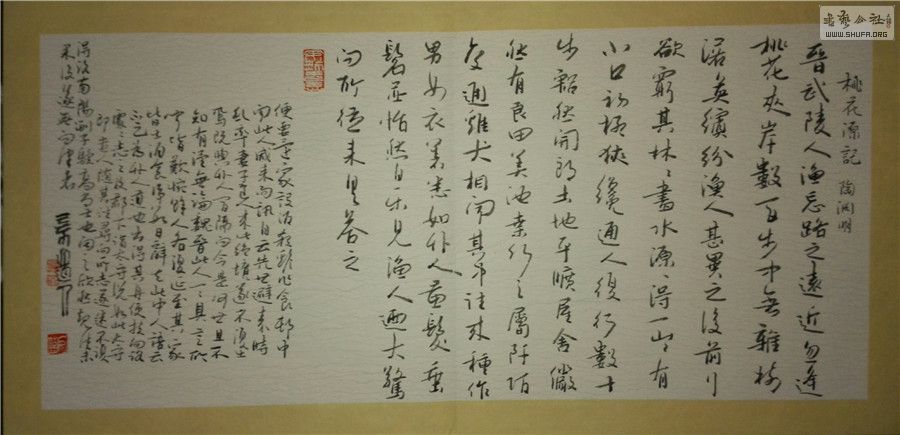 書藝公社
WWW.SHUFA.ORG
桃花源記 陶淵明
晉武陵人漁忘路之遠近勿逢
桃花夾岸數百步中無雜樹
落英繽紛漁人甚異之後前行
欲窮其林〻盡水源〻得一山〻有
小口初極狹纔通人復行數十
步豁然開朗土地平曠屋舍儼
然有良田美池桑竹之屬阡陌
交通雞犬相聞其中往來種作
男女衣著悉如外人黃髮垂
髫並怡然自樂見漁人迺大驚
問所從來具答之
便要還家設酒殺雞作食邨中
聞此人咸來問訊自云先世避秦時
亂率妻子邑人來絕境遂不復出
焉既與外人間隔問今是何世且不
知有漢無論魏晉此人一〻具言所
聞皆歎惋餘人各復延至其家
皆出酒食停數日辭去此中人語云
不足為外人道也出得其舟便扶向路
處〻志之及郡下詣太守說如此太守
即遣人隨其往尋向所志遂迷不復
得路南陽劉子驥高尚士也聞之欣然規往未
果後遂無問津者